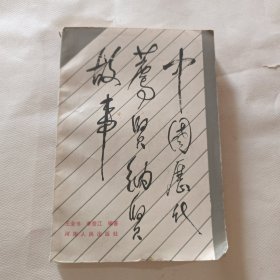 中国历代
荐贤纳贤
故事
河南人民出版社